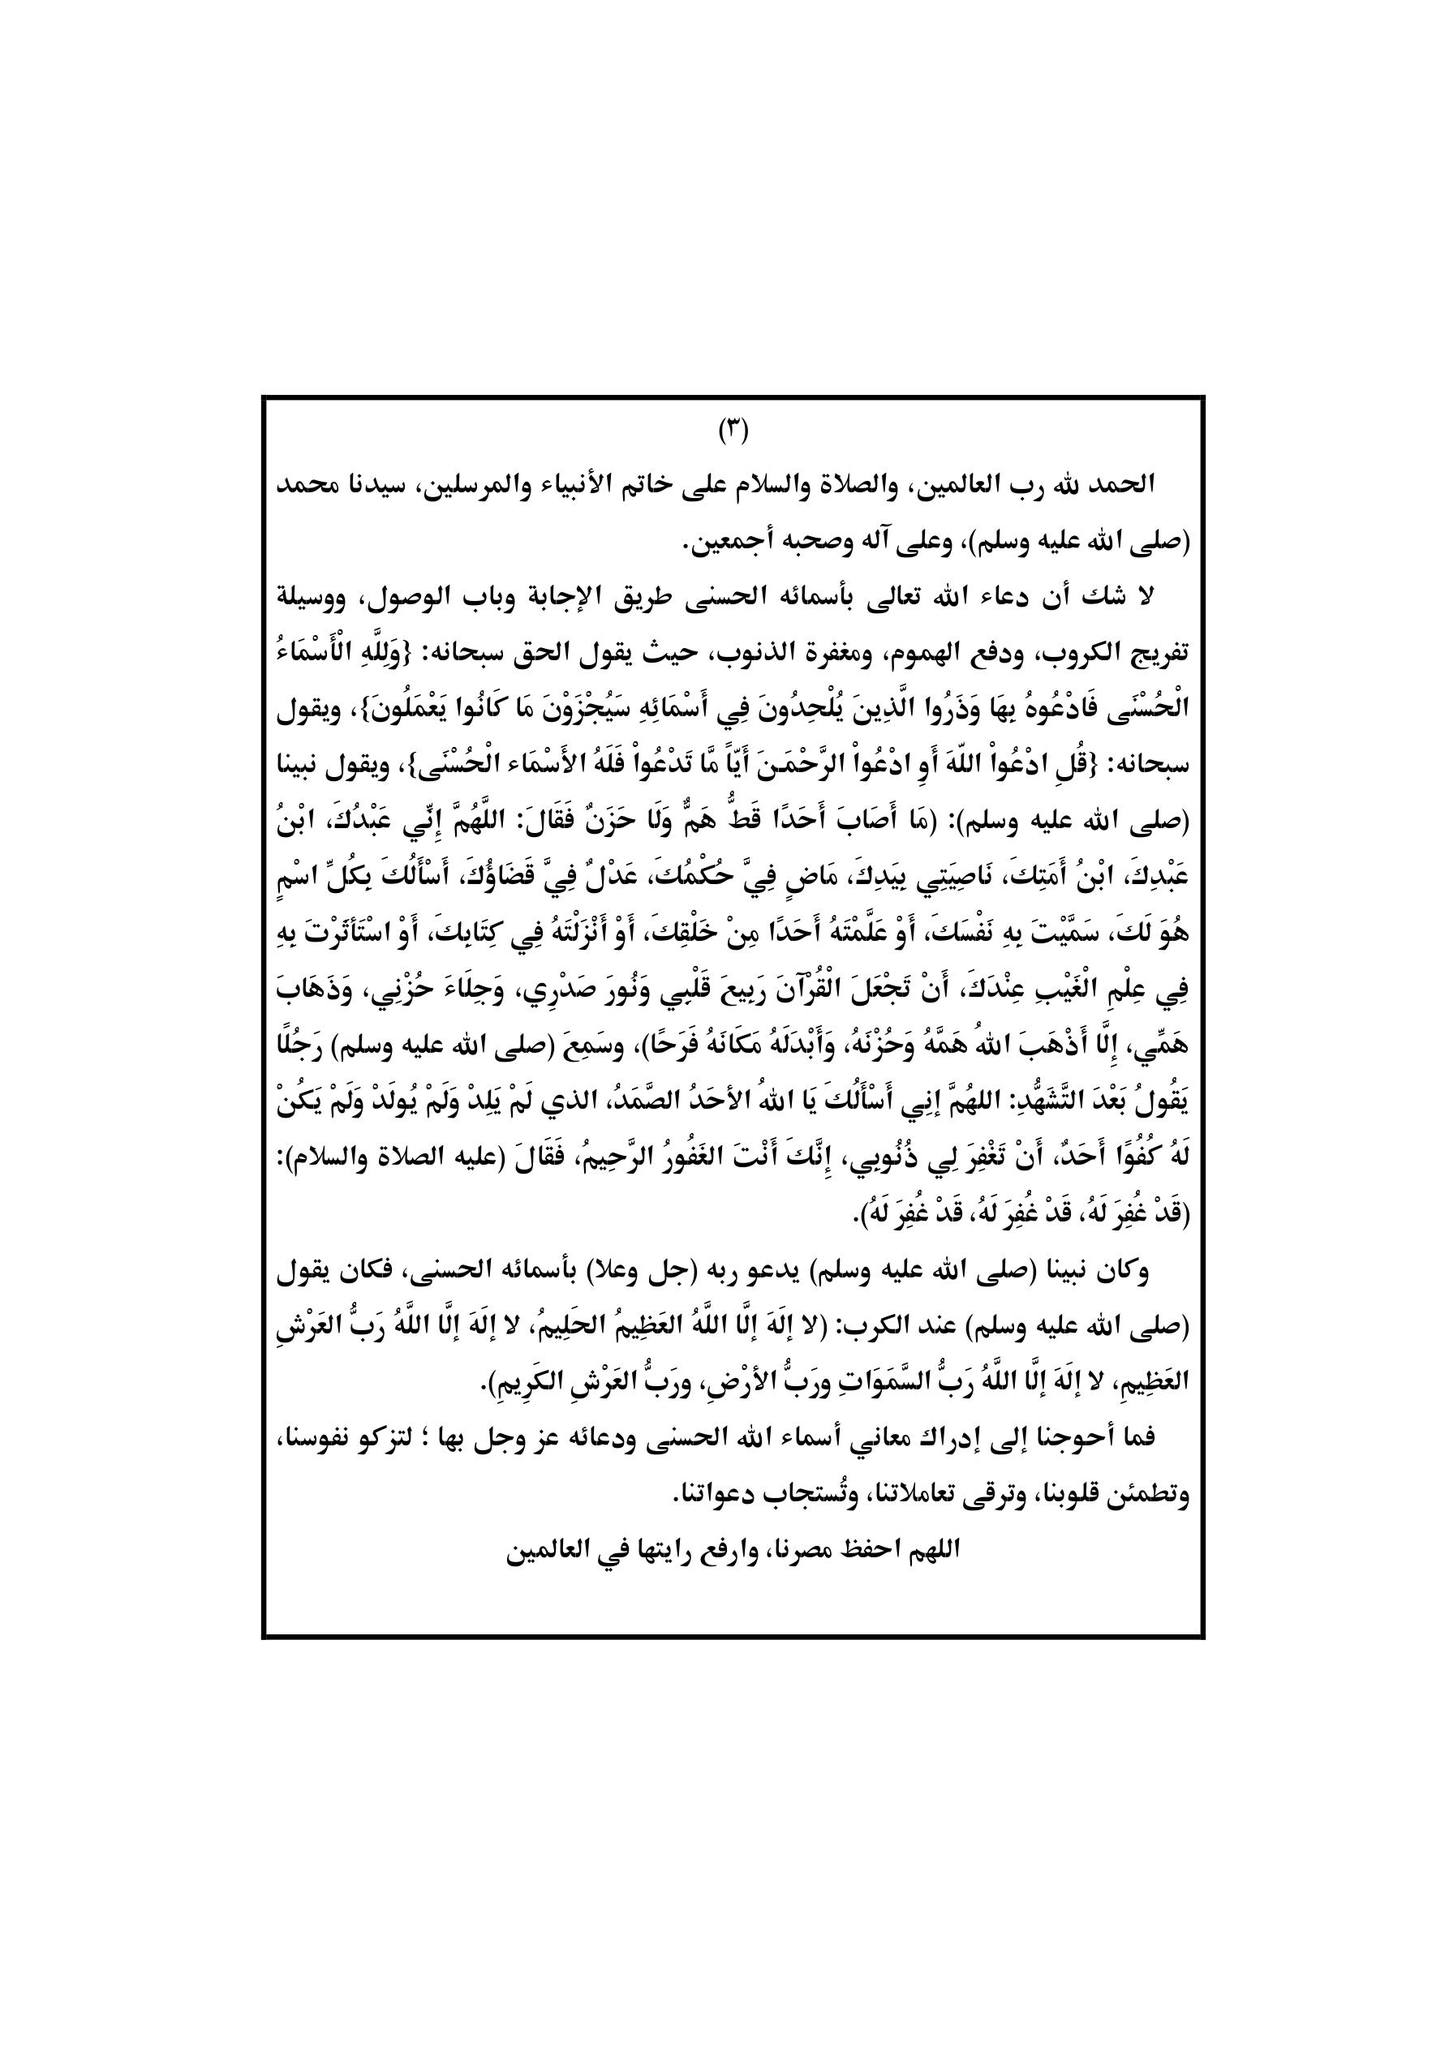 (٣)
الحمد لله رب العالمين، والصلاة والسلام على خاتم الأنبياء والمرسلين، سيدنا محمد
(صلى الله عليه وسلم)، وعلى آله وصحبه أجمعين.
لا شك أن دعاء الله تعالى بأسمائه الحسنى طريق الإجابة وباب الوصول، ووسيلة
تفريج الكروب، ودفع الهموم، ومغفرة الذنوب، حيث يقول الحق سبحانه: {وَلِلَّهِ الْأَسْمَاءُ
الْحُسْنَى فَادْعُوهُ بِهَا وَذَرُوا الَّذِينَ يُلْحِدُونَ فِي أَسْمَائِهِ سَيُجْزَوْنَ مَا كَانُوا يَعْمَلُونَ}، ويقول
سبحانه: {قُلِ ادْعُواْ اللّهَ أَوِ ادْعُواْ الرَّحْمَـنَ أَيّاً مَّا تَدْعُواْ فَلَهُ الأَسْمَاء الْحُسْنَى}، ويقول نبينا
(صلى الله عليه وسلم): (مَا أَصَابَ أَحَدًا قَطُّ هَمٌّ وَلَا حَزَنٌ فَقَالَ: اللَّهُمَّ إِنِّي عَبْدُكَ، ابْنُ
عَبْدِكَ، ابْنُ أَمَتِكَ، نَاصِيَتِي بِيَدِكَ، مَاضٍ فِيَّ حُكْمُكَ، عَدْلٌ فِيَّ قَضَاؤُكَ، أَسْأَلُكَ بِكُلِّ اسْمٍ
هُوَ لَكَ، سَمَّيْتَ بِهِ نَفْسَكَ، أَوْ عَلَّمْتَهُ أَحَدًا مِنْ خَلْقِكَ، أَوْ أَنْزَلْتَهُ فِي كِتَابِكَ، أَوْ اسْتَأثَرْتَ بِهِ
فِي عِلْمِ الْغَيْبِ عِنْدَكَ، أَنْ تَجْعَلَ الْقُرْآنَ رَبِيعَ قَلْبِي وَنُورَ صَدْرِي، وَجِلَاءَ حُزْنِي، وَذَهَابَ
هَمِّي، إِلَّا أَذْهَبَ اللهُ هَمَّهُ وَحُزْنَهُ، وَأَبْدَلَهُ مَكَانَهُ فَرَحًا)، وسَمِعَ (صلى الله عليه وسلم) رَجُلًا
يَقُولُ بَعْدَ التَّشَهُّدِ: اللهُمَّ إنِي أَسْأَلُكَ يَا اللهُ الأحَدُ الصَّمَدُ، الذي لَمْ يَلِدْ وَلَمْ يُولَدْ وَلَمْ يَكُنْ
لَهُ كُفُوًا أَحَدٌ، أَنْ تَغْفِرَ لِي ذُنُوبِي، إِنَّكَ أَنْتَ الغَفُورُ الرَّحِيمُ، فَقَالَ (عليه الصلاة والسلام):
(قَدْ غُفِرَ لَهُ، قَدْ غُفِرَ لَهُ، قَدْ غُفِرَ لَهُ).
وكان نبينا (صلى الله عليه وسلم) يدعو ربه (جل وعلا) بأسمائه الحسنى، فكان يقول
(صلى الله عليه وسلم) عند الكرب: (لا إلَهَ إلَّا اللَّهُ العَظِيمُ الحَلِيمُ، لا إلَهَ إلَّا اللَّهُ رَبُّ العَرْشِ
العَظِيمِ، لا إلَهَ إلَّا اللَّهُ رَبُّ السَّمَوَاتِ ورَبُّ الأرْضِ، ورَبُّ العَرْشِ الكَرِيمِ).
فما أحوجنا إلى إدراك معاني أسماء الله الحسنى ودعائه عز وجل بها ؛ لتزكو نفوسنا،
وتطمئن قلوبنا، وترقى تعاملاتنا، وتُستجاب دعواتنا.
اللهم احفظ مصرنا، وارفع رايتها في العالمين